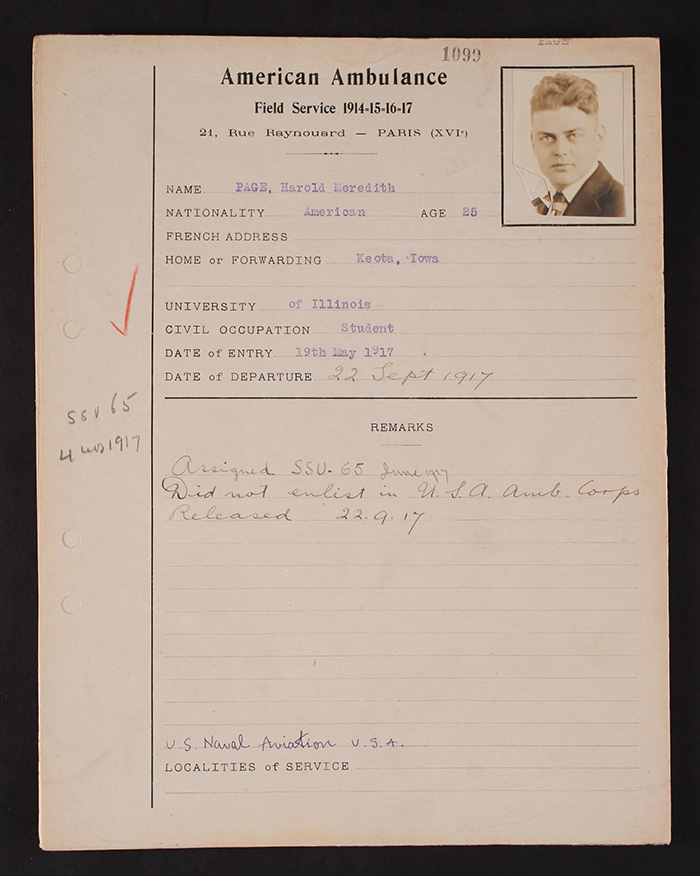 1099
PAGE
American Ambulance
Field Service 1914-15-16-17
21, Rue Raynouard — PARIS (XVIe)
NAME PAGE, Harold Meredith
NATIONALITY American AGE 25
FRENCH ADDRESS
HOME or FORWARDING Keota, Iowa
UNIVERSITY of Illinois
CIVIL OCCUPATION Student
DATE of ENTRY 19th May 1917
DATE of DEPARTURE 22 Sept 1917
SSU 65
4 mos 1917
REMARKS
Assigned SSU-65 June 1917
Did not enlist in U.S.A. Amb. Corps
Released 22.9.17
U.S. Naval Aviation U.S.A.
LOCALITIES of SERVICE